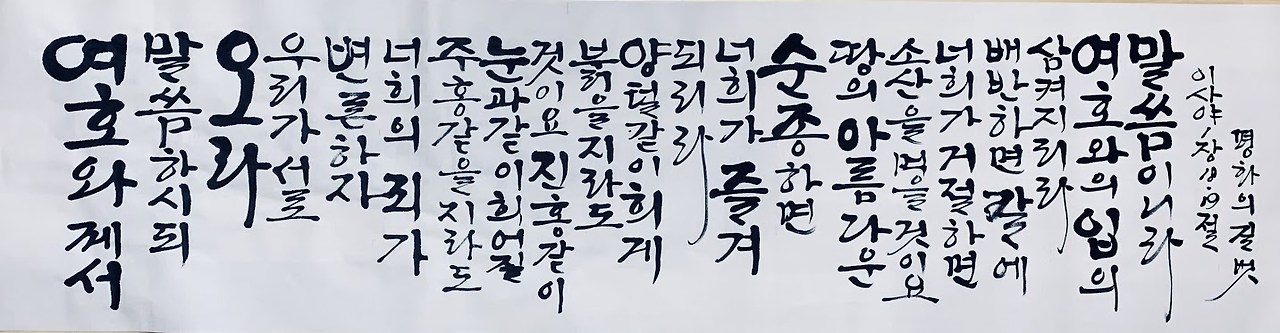 여호와께서
말씀하시되
오라
우리가서로
변론하자
너희의죄가
주홍같을지라도
눈과같이희어질
것이요진홍같이
붉을지라도
양털같이희게
되리라
너희가즐겨
순종하면
땅의아름다운
소산을먹을것이요
너희가거절하면
배반하면칼에
삼켜지리라
여호와의입의
말씀이니라
이사야1장18·19절
평화의길벗